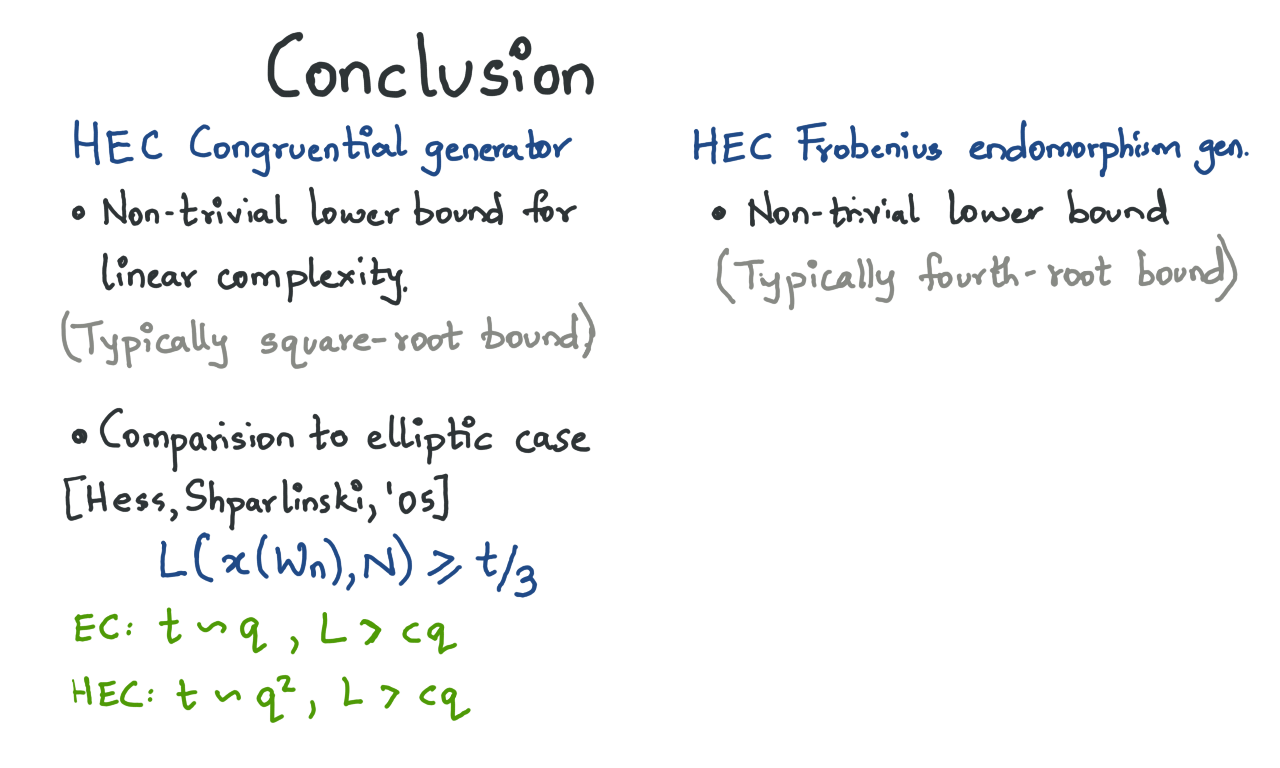 Conclusion
HEC Congruential generator
• Non-trivial lower bound for
linear complexity.
(Typically square-root bound)
• Comparision to elliptic case
[Hess, Shparlinski, '05]
L(x(Wn), N) ⩾ t/3
EC: t ∽ q , L > cq
HEC: t ∽ q², L > cq
HEC Frobenius endomorphism gen.
• Non-trivial lower bound
(Typically fourth-root bound)